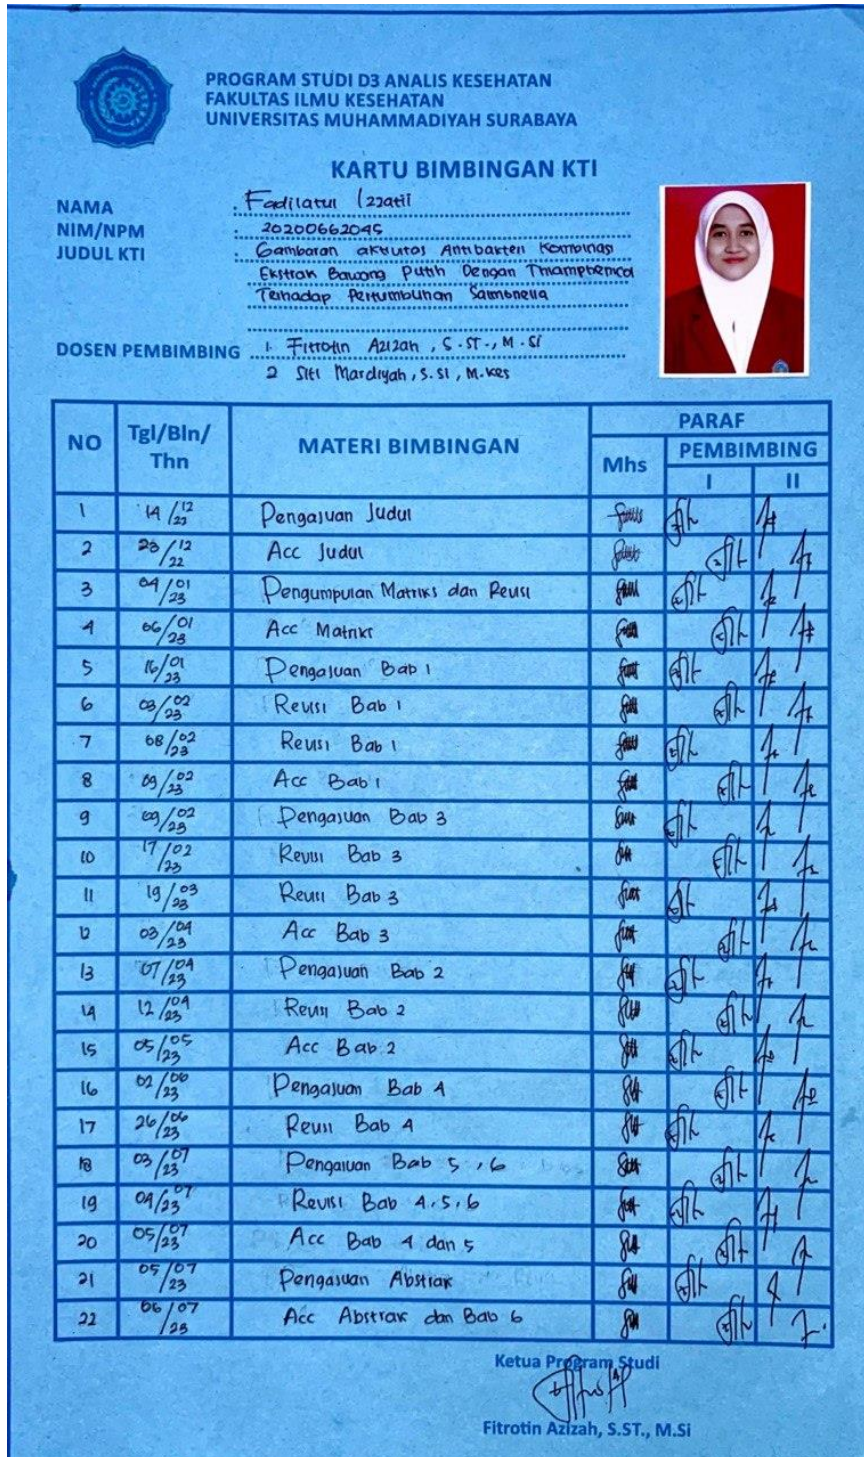 PROGRAM STUDI D3 ANALIS KESEHATAN
FAKULTAS ILMU KESEHATAN
UNIVERSITAS MUHAMMADIYAH SURABAYA
KARTU BIMBINGAN KTI
NAMA : Fadilatul Izzatii
NIM/NPM : 20200662045
JUDUL KTI : Gambaran aktivitas Antibakteri Kombinasi
Ekstrak Bawang Putih Dengan Thiamphenicol
Terhadap Pertumbuhan Salmonella
DOSEN PEMBIMBING 1. Fitrotin Azizah, S.ST., M.Si
2 Siti Mardiyah, S.Si, M.Kes
NO Tgl/Bln/Thn MATERI BIMBINGAN PARAF
Mhs PEMBIMBING
I II
1 14/12 22 Pengajuan Judul
2 23/12 22 Acc Judul
3 04/01 23 Pengumpulan Matriks dan Revisi
4 06/01 23 Acc Matriks
5 16/01 23 Pengajuan Bab 1
6 03/02 23 Revisi Bab 1
7 08/02 23 Revisi Bab 1
8 09/02 23 Acc Bab 1
9 09/02 23 Pengajuan Bab 3
10 17/02 23 Revisi Bab 3
11 19/03 23 Revisi Bab 3
12 03/04 23 Acc Bab 3
13 07/04 23 Pengajuan Bab 2
14 12/04 23 Revisi Bab 2
15 05/05 23 Acc Bab 2
16 02/06 23 Pengajuan Bab 4
17 26/06 23 Revisi Bab 4
18 03/07 23 Pengajuan Bab 5, 6
19 04/07 23 Revisi Bab 4, 5, 6
20 05/07 23 Acc Bab 4 dan 5
21 05/07 23 Pengajuan Abstrak
22 06/07 23 Acc Abstrak dan Bab 6
Ketua Program Studi
Fitrotin Azizah, S.ST., M.Si